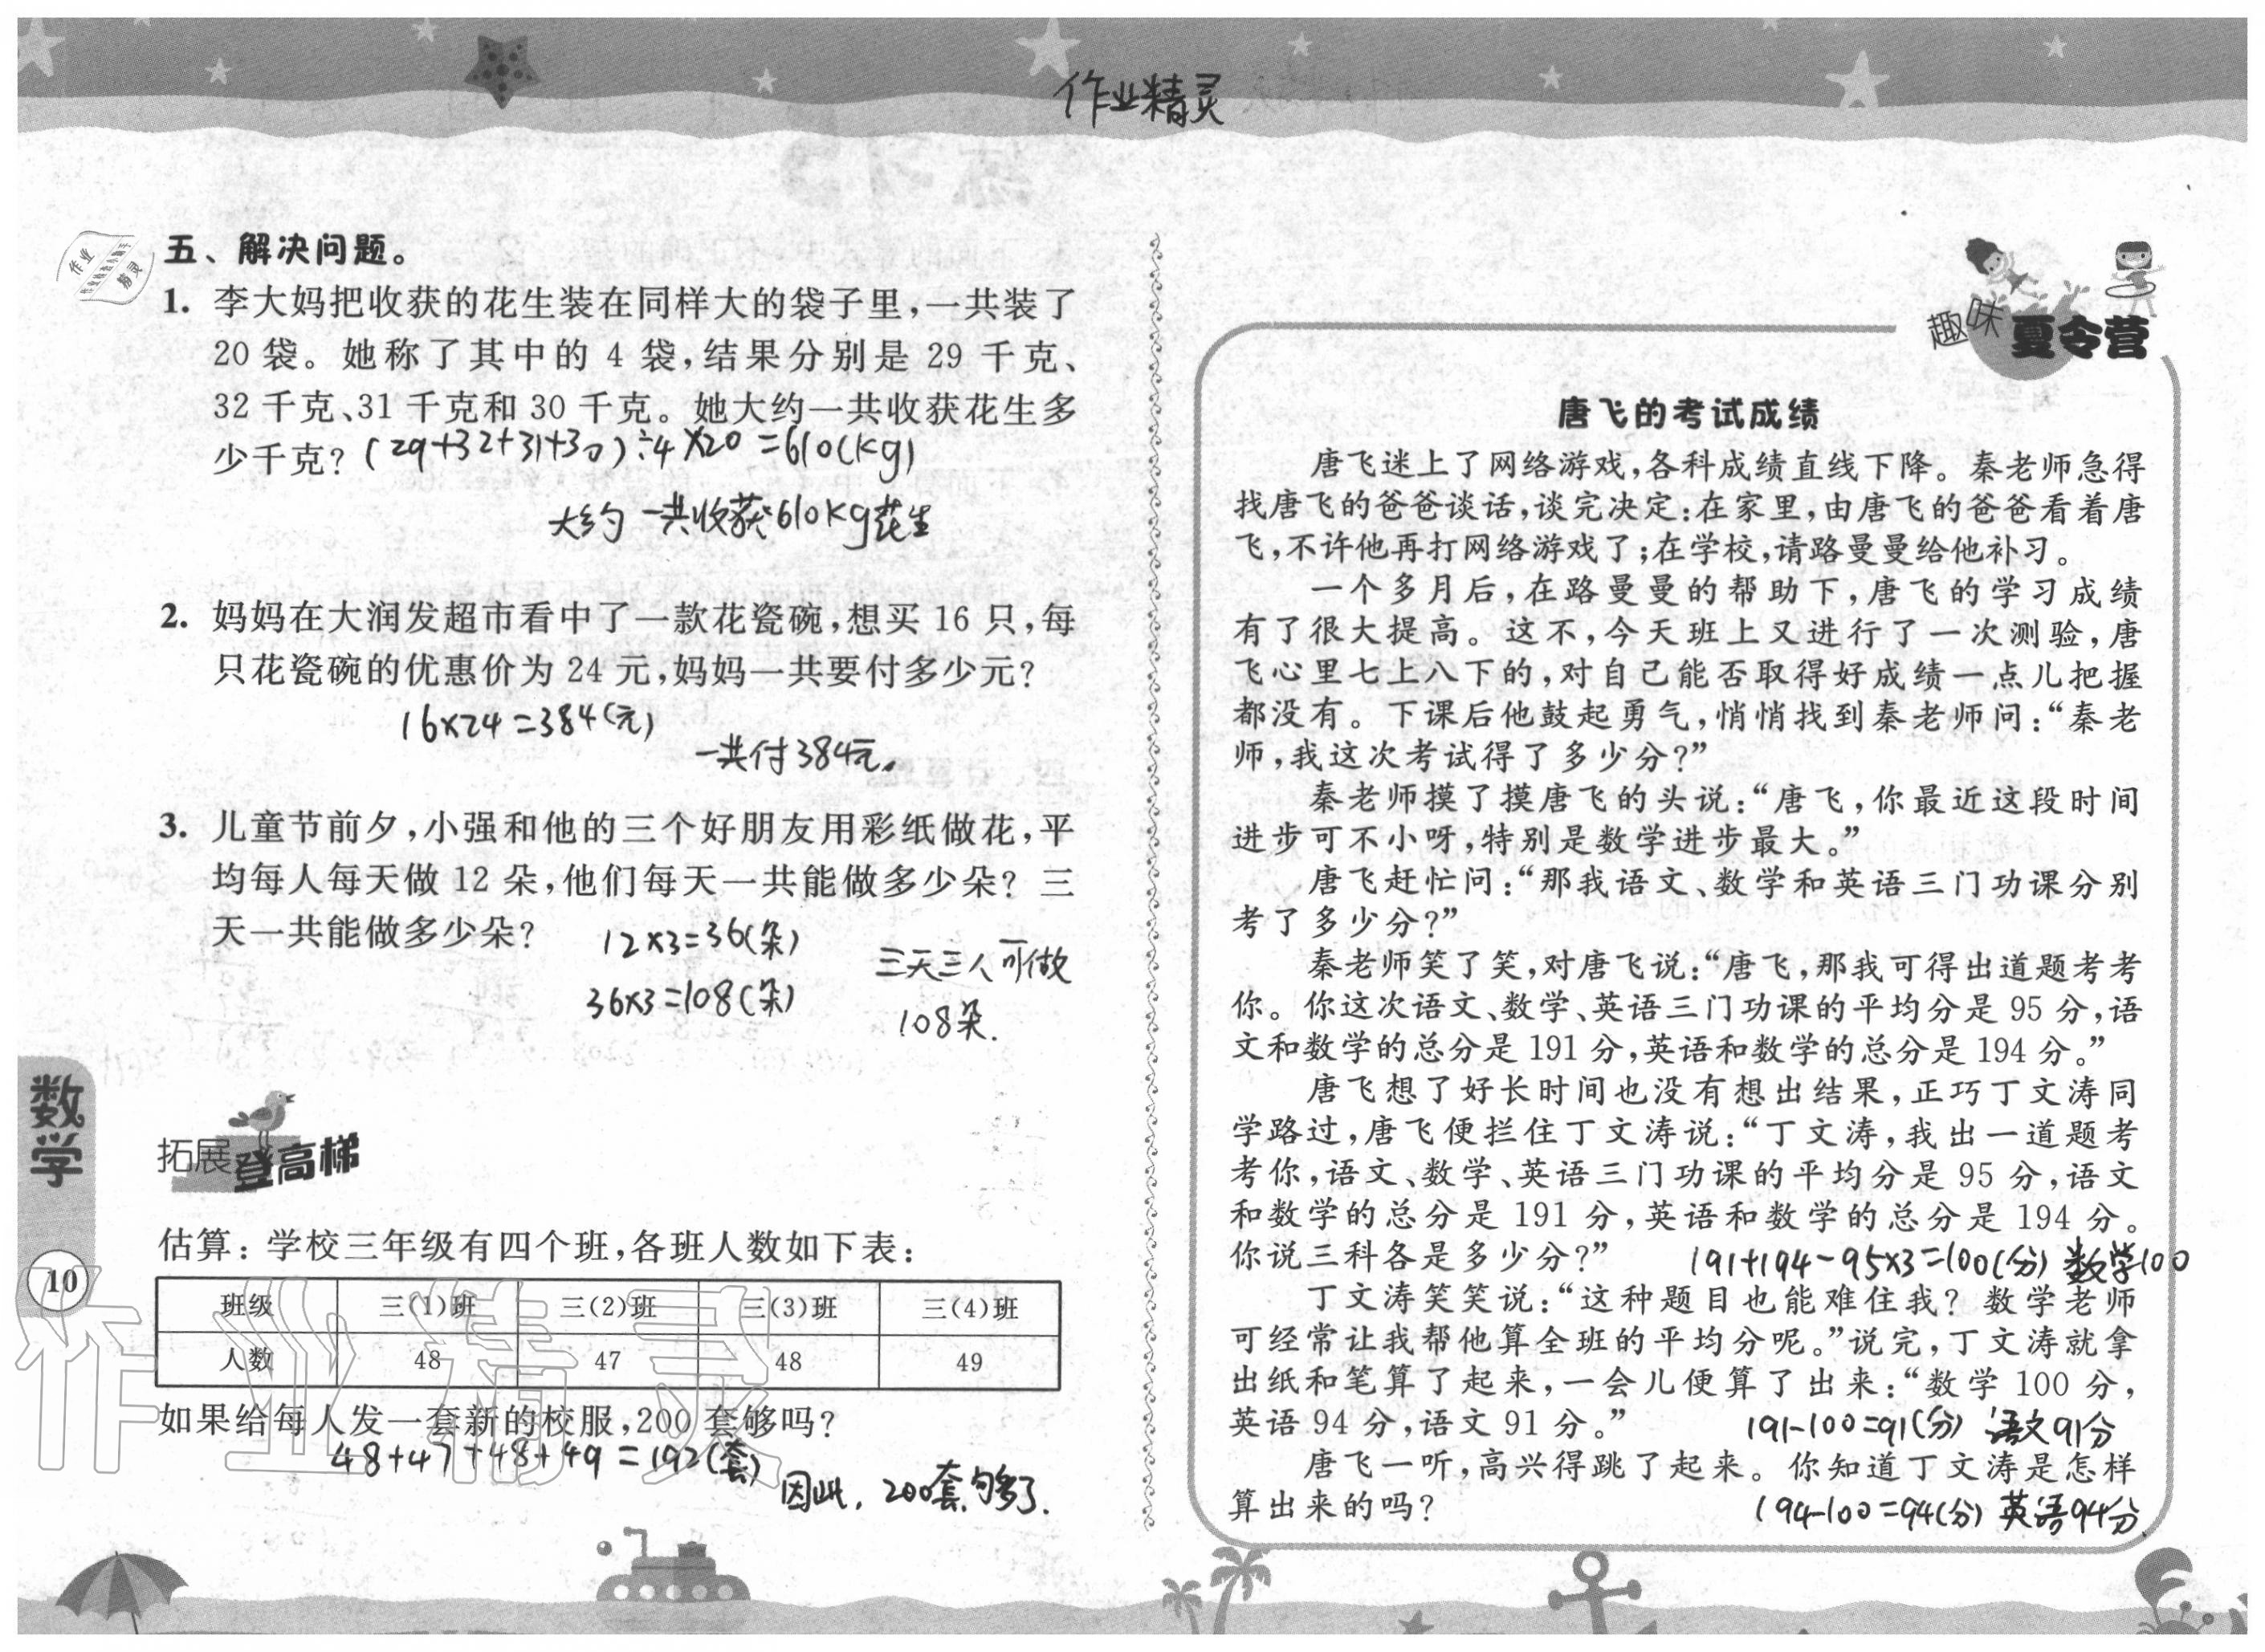 作业精灵
五、解决问题。
1. 李大妈把收获的花生装在同样大的袋子里,一共装了
20 袋。她称了其中的 4 袋,结果分别是 29 千克、
32 千克、31 千克和 30 千克。她大约一共收获花生多
少千克? (29+32+31+30)÷4×20=610(kg)
大约一共收获610kg花生
2. 妈妈在大润发超市看中了一款花瓷碗,想买 16 只,每
只花瓷碗的优惠价为 24 元,妈妈一共要付多少元?
16×24=384(元)
一共付384元。
3. 儿童节前夕,小强和他的三个好朋友用彩纸做花,平
均每人每天做 12 朵,他们每天一共能做多少朵? 三
天一共能做多少朵?
12×3=36(朵)
36×3=108(朵)
三天三人可做
108朵.
数学
10
拓展登高梯
估算: 学校三年级有四个班,各班人数如下表:
班级 三(1)班 三(2)班 三(3)班 三(4)班
人数 48 47 48 49
如果给每人发一套新的校服,200 套够吗?
48+47+48+49=192(套)
因此, 200套够了.
作业精灵
作业
精灵
趣味夏令营
唐飞的考试成绩
唐飞迷上了网络游戏,各科成绩直线下降。秦老师急得
找唐飞的爸爸谈话,谈完决定:在家里,由唐飞的爸爸看着唐
飞,不许他再打网络游戏了;在学校,请路曼曼给他补习。
一个多月后,在路曼曼的帮助下,唐飞的学习成绩
有了很大提高。这不,今天班上又进行了一次测验,唐
飞心里七上八下的,对自己能否取得好成绩一点儿把握
都没有。下课后他鼓起勇气,悄悄找到秦老师问:“秦老
师,我这次考试得了多少分?”
秦老师摸了摸唐飞的头说:“唐飞,你最近这段时间
进步可不小呀,特别是数学进步最大。”
唐飞赶忙问:“那我语文、数学和英语三门功课分别
考了多少分?”
秦老师笑了笑,对唐飞说:“唐飞,那我可得出道题考考
你。你这次语文、数学、英语三门功课的平均分是 95 分,语
文和数学的总分是 191 分,英语和数学的总分是 194 分。”
唐飞想了好长时间也没有想出结果,正巧丁文涛同
学路过,唐飞便拦住丁文涛说:“丁文涛,我出一道题考
考你,语文、数学、英语三门功课的平均分是 95 分,语文
和数学的总分是 191 分,英语和数学的总分是 194 分。
你说三科各是多少分?” 191+194-95×3=100(分) 数学100
丁文涛笑笑说:“这种题目也能难住我? 数学老师
可经常让我帮他算全班的平均分呢。”说完,丁文涛就拿
出纸和笔算了起来,一会儿便算了出来:“数学 100 分,
英语 94 分,语文 91 分。” 191-100=91(分) 语文91分
唐飞一听,高兴得跳了起来。你知道丁文涛是怎样
算出来的吗? 194-100=94(分) 英语94分